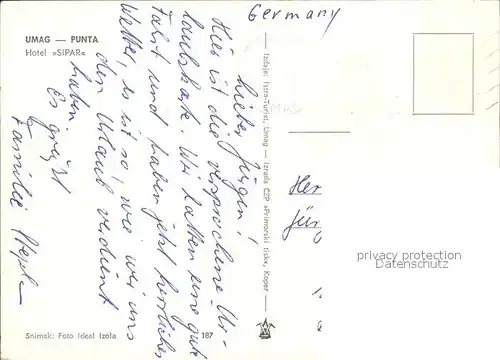 UMAG — PUNTA
Hotel »SIPAR«
Germany
Lieber Jürgen!
Hier ist die versprochene Ur-
laubskarte. Wir hatten eine gute
Fahrt und haben jetzt herrliches
Wetter, es ist so, wie wir uns
den Urlaub verdient
haben.
Es grüßt
Familie
Izdaje: Istra-Turist, Umag — Izrada CZP »Primorski tisk«, Koper
Her
Jür
privacy protection
Datenschutz
Snimak: Foto Ideal Izola
187